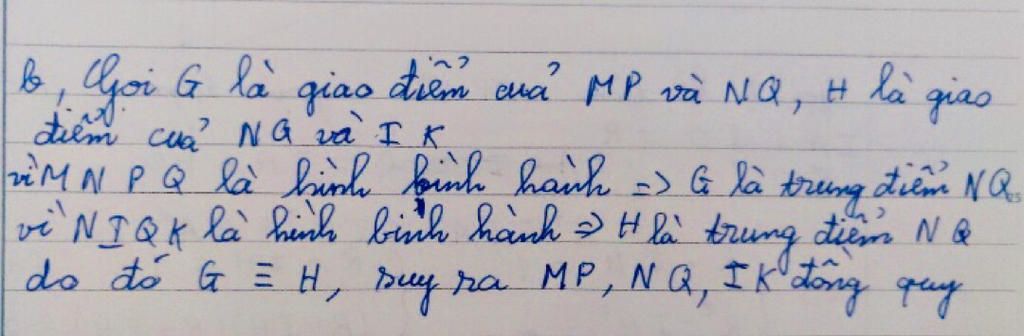 b, Gọi G là giao điểm của MP và NQ, H là giao
điểm của NQ và IK
vì MNPQ là hình bình hành => G là trung điểm NQ
vì NIQK là hình bình hành => H là trung điểm NQ
do đó G ≡ H, suy ra MP, NQ, IK đồng quy